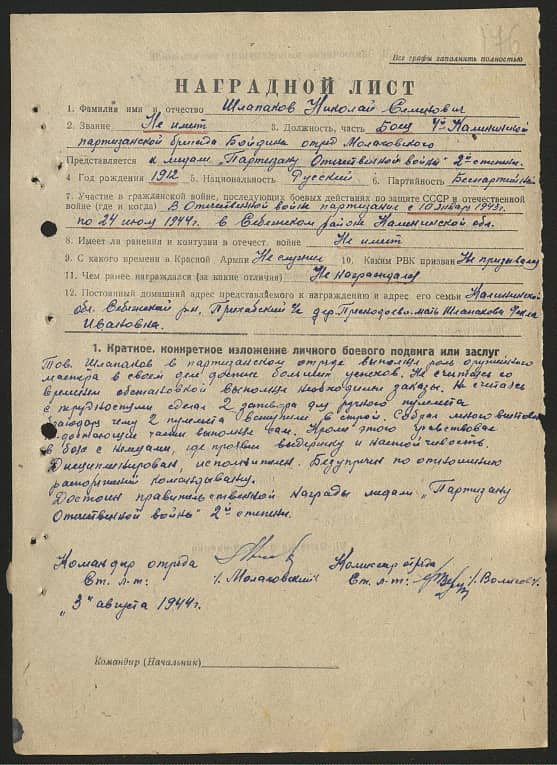 176
Все графы заполнить полностью
НАГРАДНОЙ ЛИСТ
1. Фамилия имя и отчество Шлапаков Николай Семенович
2. Звание Не имеет 3. Должность, часть Боец 4й Калининской
партизанской бригады Бойдина отряд Молаковского
Представляется к медали "Партизану Отечественной войны" 2й степени.
4 Год рождения 1912 5. Национальность Русский 6. Партийность Беспартийн
7. Участие в гражданской войне, последующих боевых действиях по защите СССР и отечественной
войне (где и когда) В Отечественной войне партизане с 10 января 1943г.
по 24 июля 1944г. в Себежском районе Калининской обл.
8. Имеет ли ранения и контузии в отечест. войне Не имеет
9. С какого времени в Красной Армии Не служил 10. Каким РВК призван Не призывался
11. Чем ранее награждался (за какие отличия) Не награждался
12. Постоянный домашний адрес представляемого к награждению и адрес его семьи Калининской
обл. Себежский р-н, дер. мать Шлапакова Фекла
Ивановна.
1. Краткое, конкретное изложение личного боевого подвига или заслуг
Тов. Шлапаков в партизанском отряде выполнял роль оружейного
мастера в своем деле достиг больших успехов. Не считаясь со
временем обстановкой выполнял необходимые заказы. Не считаясь
с трудностями сделал 2 затвора для ручного пулемета
благодаря чему 2 пулемета вступили в строй. Собрал много винтовок
недостающие части выполнял сам. Кроме этого участвовал
в боях с немцами, где проявил выдержку и настойчивость.
Дисциплинирован, исполнителен. Безупречен по отношению
распоряжений командования.
Достоин правительственной награды медали "Партизану
Отечественной войны" 2й степени.
Командир отряда Комиссар отряда
Ст. л-т: /. Молаковский/ Ст. л-т:
"3" августа 1944г.
Командир (Начальник)